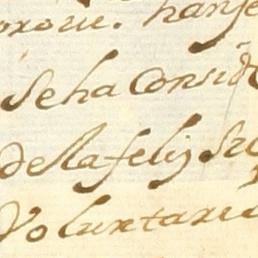 hanse
Seha Consid
de la feliz Su
Voluntaria